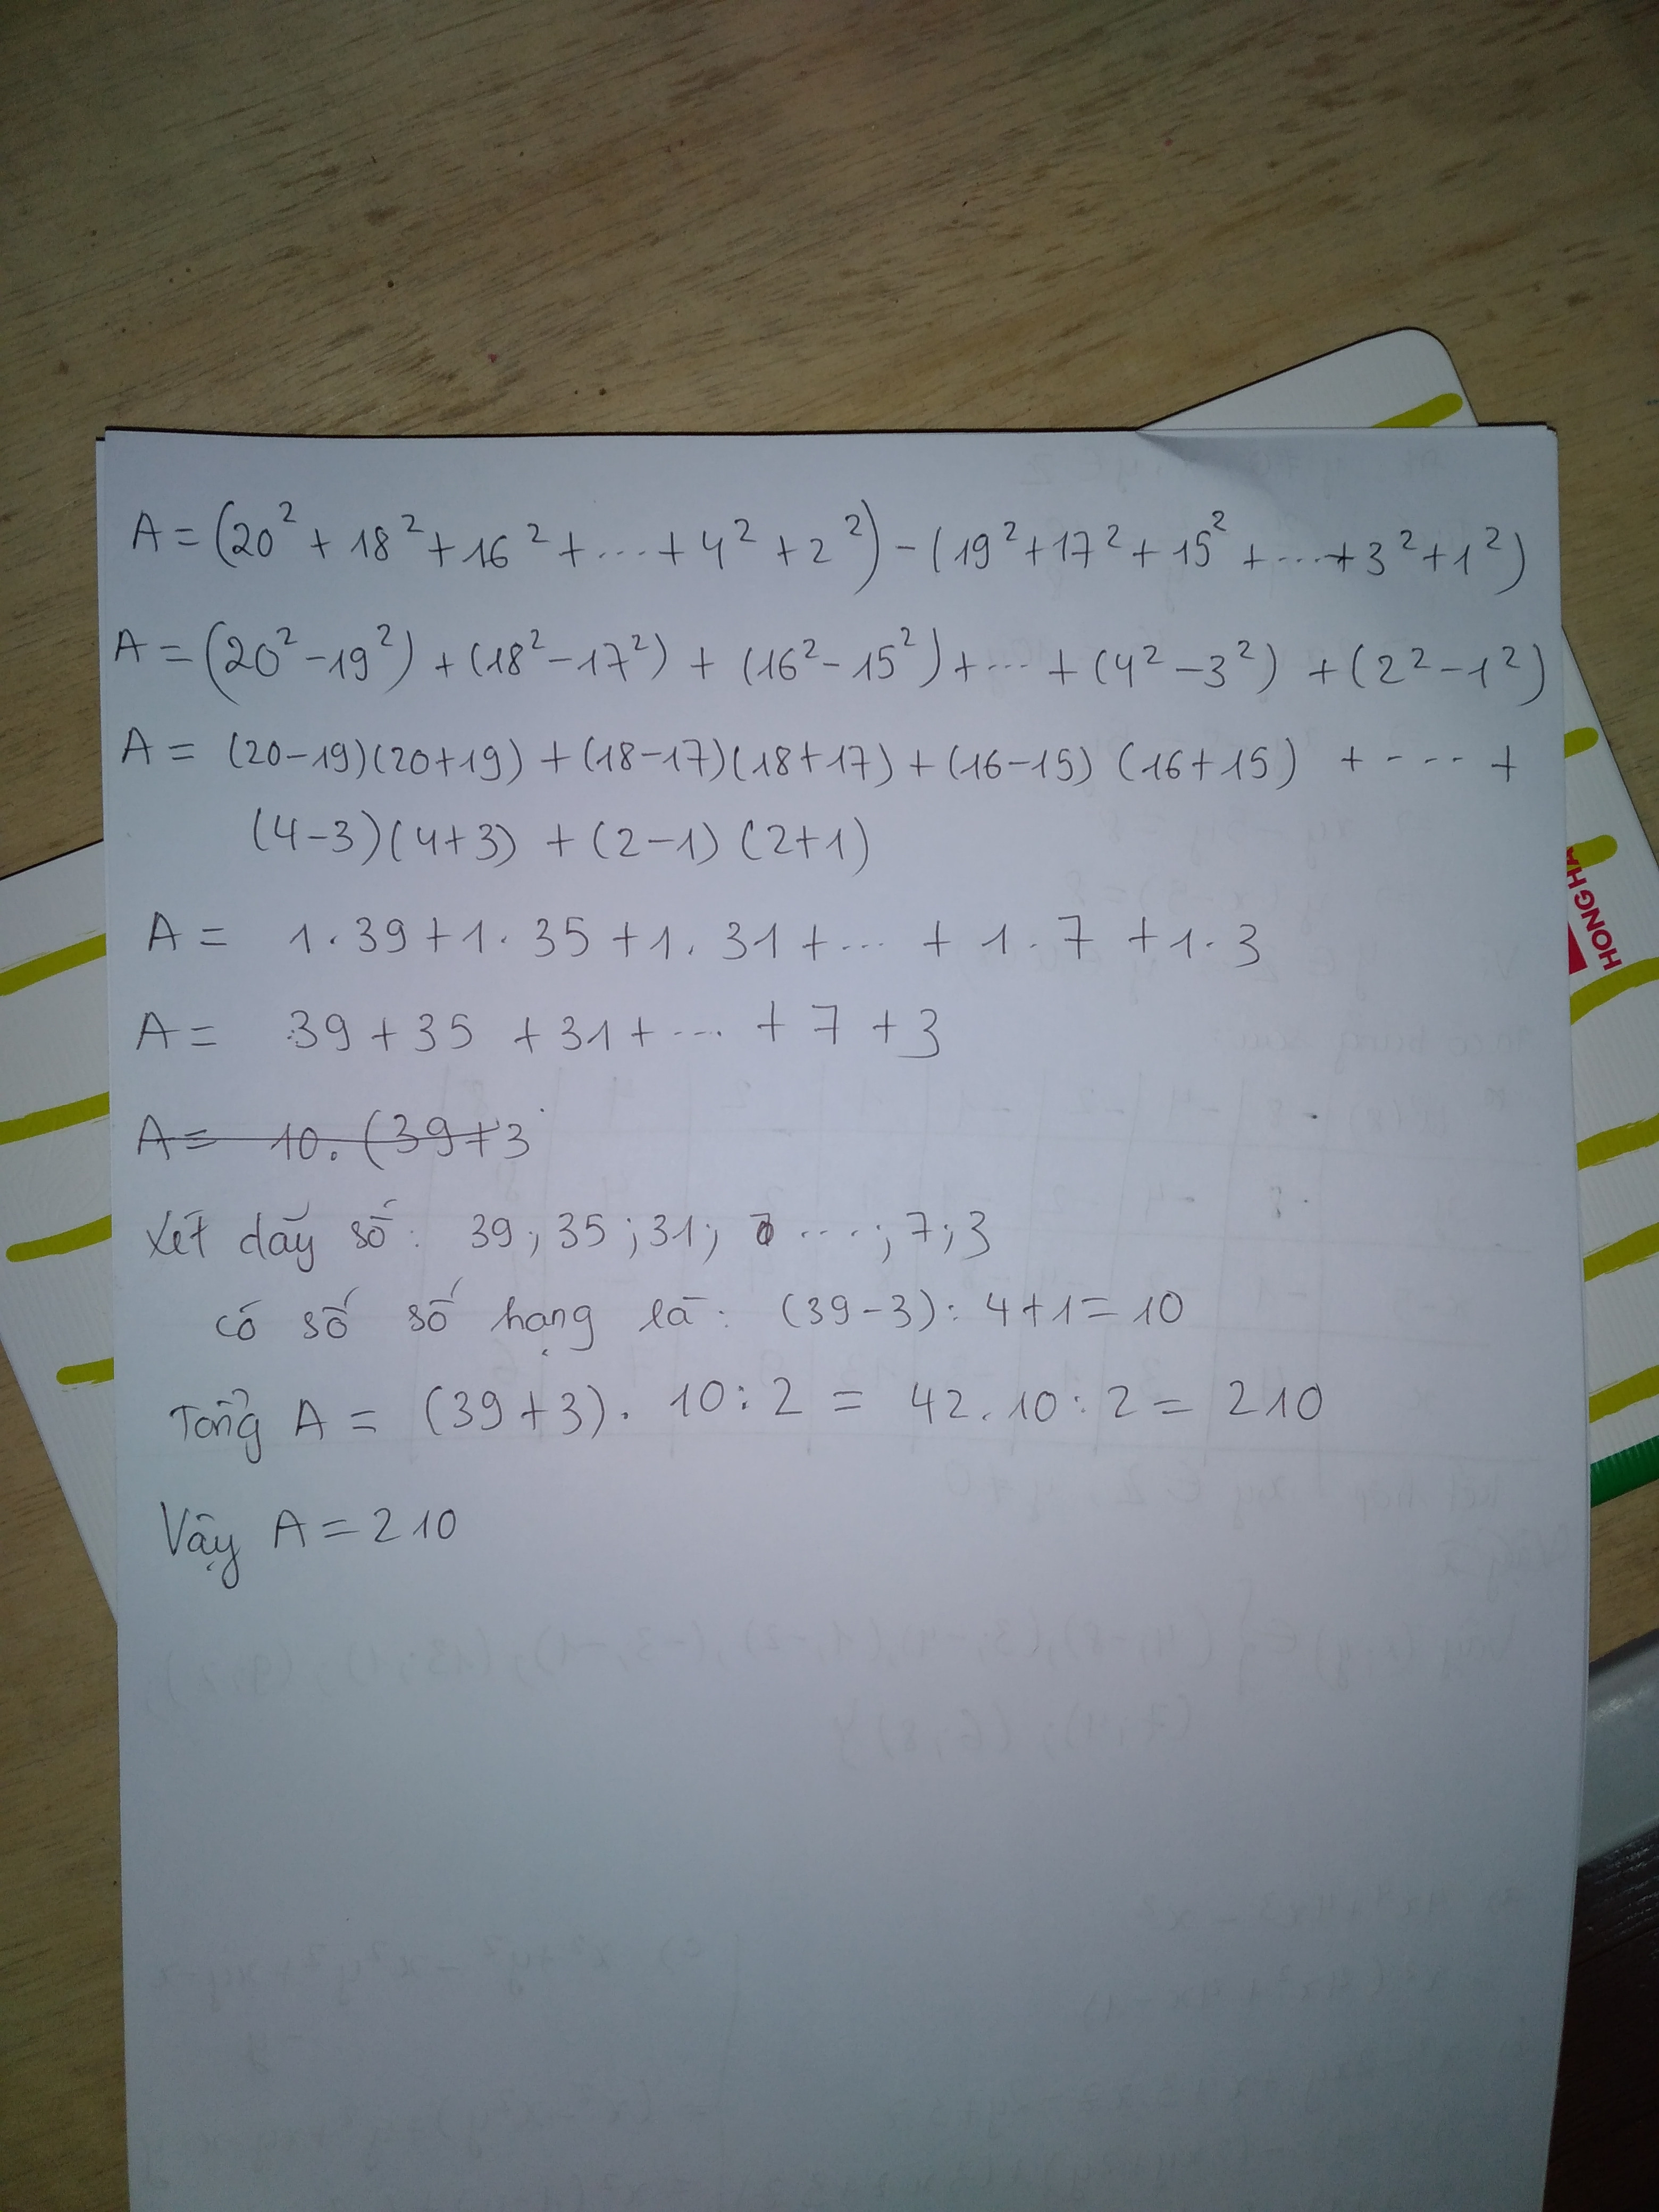 A = (20² + 18² + 16² + ... + 4² + 2²) - (19² + 17² + 15² + ... + 3² + 1²)
A = (20² - 19²) + (18² - 17²) + (16² - 15²) + ... + (4² - 3²) + (2² - 1²)
A = (20-19)(20+19) + (18-17)(18+17) + (16-15)(16+15) + ---- +
(4-3)(4+3) + (2-1)(2+1)
A = 1.39 + 1.35 + 1.31 + ... + 1.7 + 1.3
A = 39 + 35 + 31 + ... + 7 + 3
A = 10.(39+3
Xét dãy số: 39; 35; 31; ....; 7; 3
có số số hạng là: (39-3): 4+1 = 10
Tổng A = (39+3). 10:2 = 42.10:2 = 210
Vậy A = 210
HONG HA